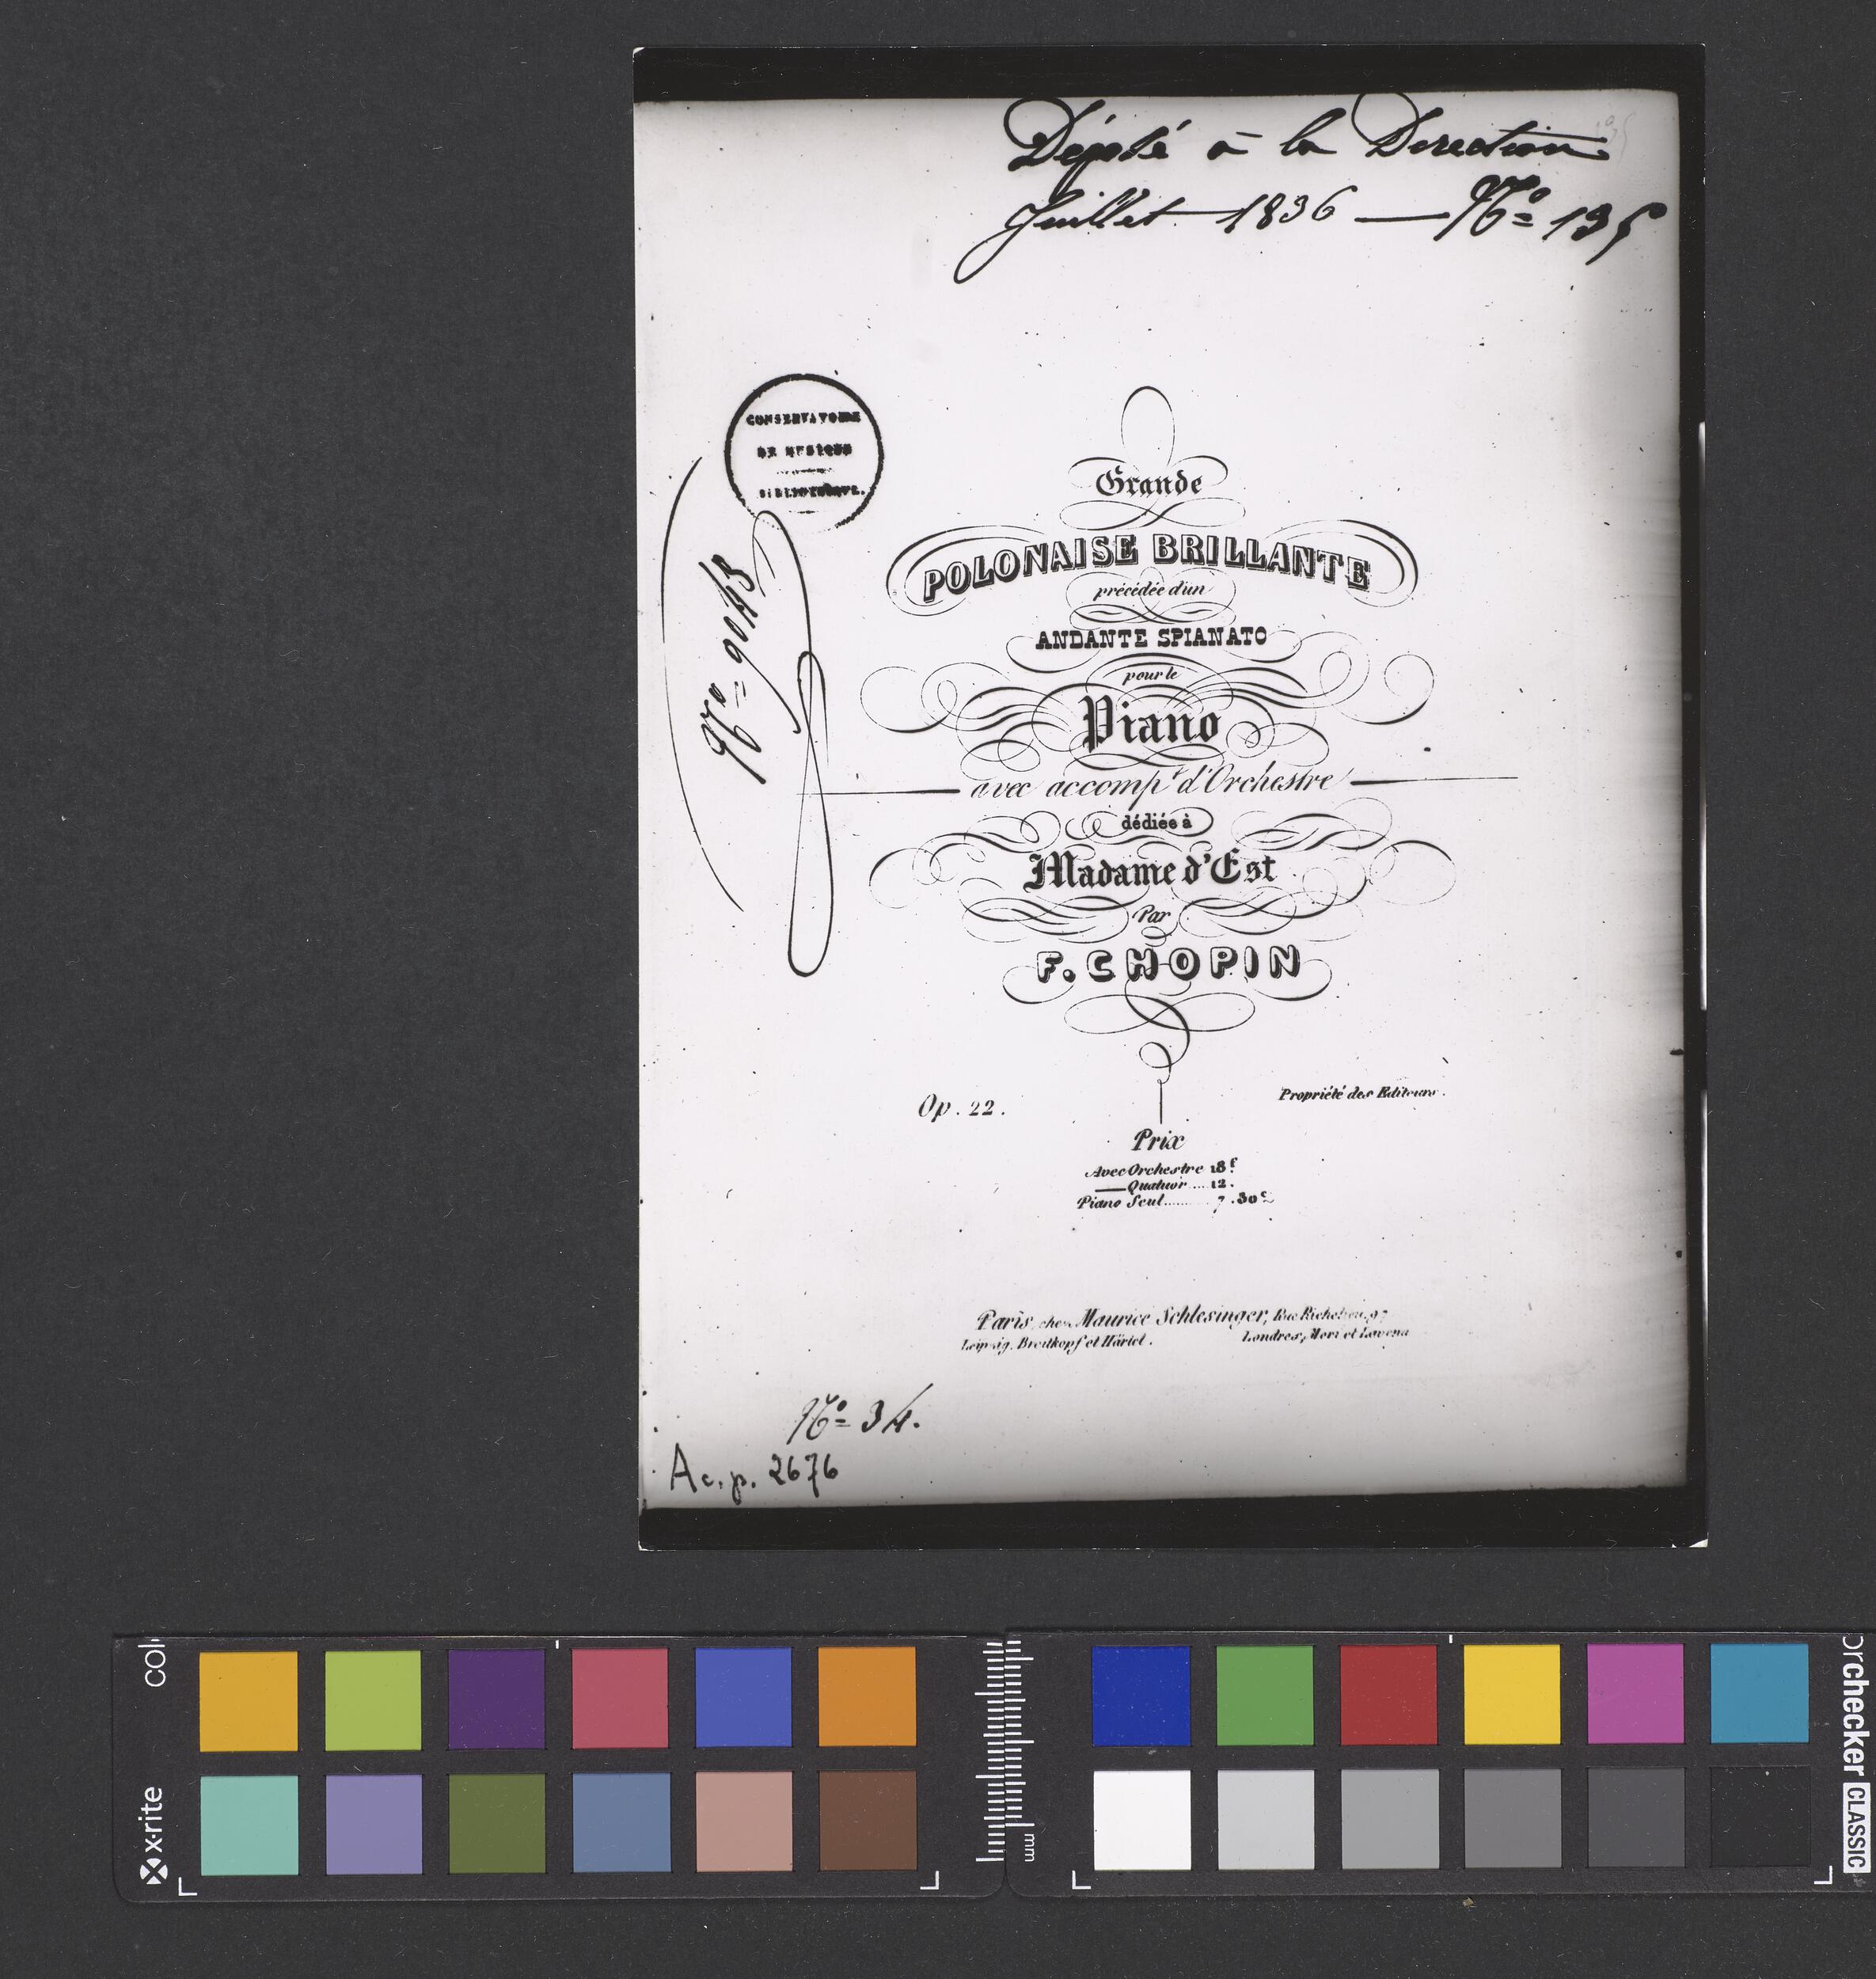 Déposé à la Direction
Juillet 1836 — Nº 135
CONSERVATOIRE
DE MUSIQUE
BIBLIOTHÈQUE.
Grande
POLONAISE BRILLANTE
précédée d'un
ANDANTE SPIANATO
pour le
Piano
avec accompt d'Orchestre
dédiée à
Madame d'Est
Par
F. CHOPIN
Op. 22.
Propriété des Editeurs.
Prix
Avec Orchestre 18f
Quatuor .... 12.
Piano Seul...... 7.50c
Paris, chez Maurice Schlesinger, Rue Richelieu, 97
Leipsig, Breitkopf et Härtel. Londres, Mori et Lavenu
Nº 34.
Ac. p. 2676
x-rite
col
mm
orchecker CLASSIC